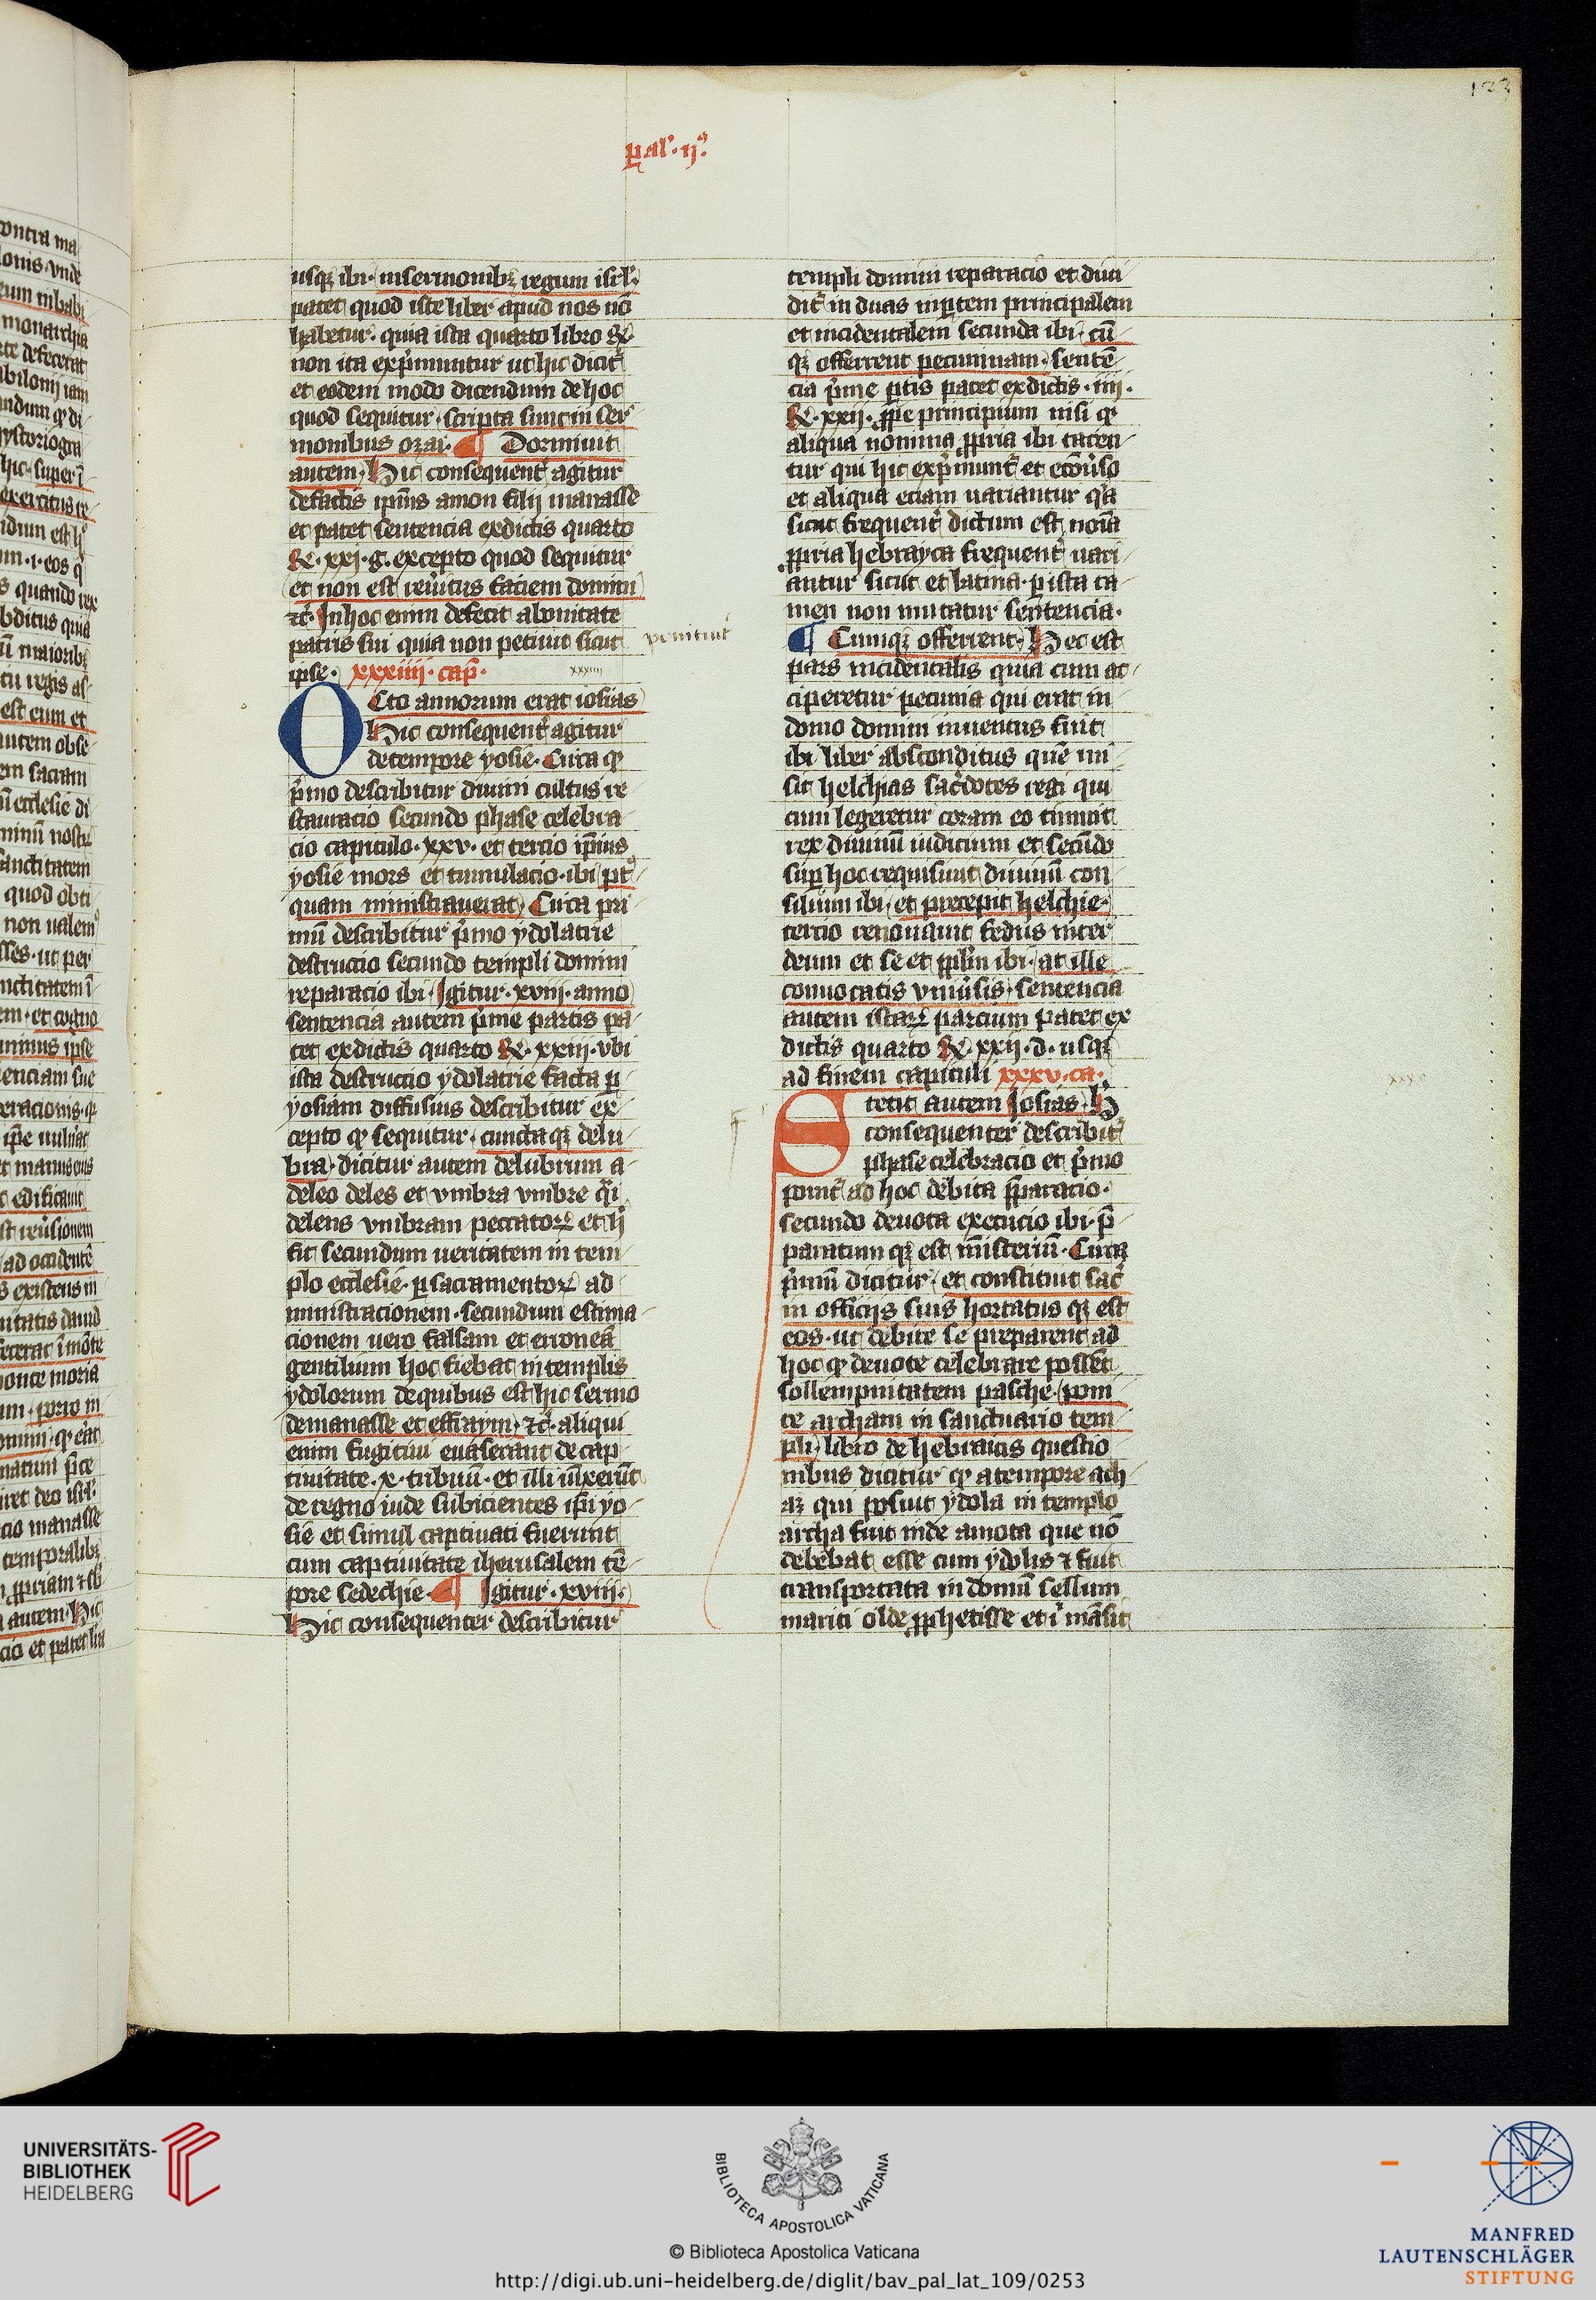 pal'. ij.
123
usqz ibi. in sermonibz regum isrl'.
patet quod iste liber apud nos nō
habetur. quia ista quarto libro Re
non ita exp̄muntur ut hic dicit'
et eodem modo dicendum de hoc
quod sequitur. scripta sunt in ser
monibus ozai. ¶ Dormiuit
autem. Hic consequent' agitur
de factis ip̄ius amon filij manasse
et patet sentencia ex dictis quarto
Re. xxi. g. excepto quod sequitur
et non est reu'itus faciem domini
⁊c̄. In hoc enim defecit a bonitate
patris sui quia non petiuit sicut
ipse. xxxiiii. cap̄.
xxxiiii
Octo annorum erat iosias
Hic consequent' agitur
de tempore yosie. Circa qͥ
p̄mo describitur diuini cultus re
stauracio secundo phase celebra
cio capitulo. xxv. et tercio ip̄ius
yosie mors et tumulacio. ibi pt'
quam ministrauerat. Circa pri
mū describitur p̄mo ydolatrie
destructio secundo templi domini
reparacio ibi. Igitur. xviii. anno
sentencia autem p̄me partis pa
tet ex dictis quarto Re. xxiii. vbi
ista destructio ydolatrie facta p̱
yosiam diffusius describitur ex
cepto qͥ sequitur. cunctaqz delu
bra. dicitur autem delubrum a
deleo deles et vmbra vmbre q̄i
delens vmbram peccatorꝝ et h'
fit secundum ueritatem in tem
plo ecclesie. p̱ sacramentorꝝ ad
ministracionem. secundum estima
cionem uero falsam et erroneā
gentilium hoc fiebat in templis
ydolorum de quibus est hic sermo
de manasse et effraym. ⁊c̄. aliqui
enim fugitiui euaserant de cap
tiuitate. x. tribuū. et illi iūxerūt
de regno iude subicientes ip̄i yo
sie et simul captiuati fuerunt
cum captiuitate iherusalem tē
pore sedechie. ¶ Igitur. xviii.
Hic consequenter describitur
templi domini reparacio et diui
dit' in duas in p̱tem principalem
et incidentalem secunda ibi. cū
qz offerrent pecuniam. sentē
cia p̄me p̱tis patet ex dictis. iiii.
Re. xxii. ꝓpe principium nisi qͥ
aliqua nomina ꝓpria ibi tacen
tur qui hic exp̄munt' et ecōu'so
et aliqua eciam uariantur q̄a
sicut frequent' dictum est noīa
ꝓpria hebrayca frequent' uari
antur sicut et latina. p̱ ista ta
men non mutatur sentencia.
¶ Cumqz offerrent. Hec est
pars incidentalis quia cum ac
ciperetur pecunia qui erat in
domo domini inuentus fuit
ibi liber absconditus quē mi
sit helchias sac'dotes regi qui
cum legeretur coram eo timuit
rex diuinū iudicium et secūdo
sup̱ hoc requisiuit diuinū con
silium ibi. et precepit helchie.
tercio renouauit fedus inter
deum et se et ppl'm ibi. at ille
conuocatis vniu'sis. sentencia
autem istarꝝ parcium patet ex
dictis quarto Re xxii. d. usqz
ad finem capituli xxxv. ca.
Stetit autem Iosias. H
consequenter describit'
phase celebracio et p̄mo
ponit' ad hoc debita p̄paracio.
secundo deuota execucio ibi. p̄
paratum qz est misteriū. Circa
p̄mum dicitur. et constituit sac'
in officijs suis hortatus qz est
eos. ut debite se preparent ad
hoc qͥ deuote celebrare possēt
sollempnitatem pasche. poni
te archam in sanctuario tem
pli. libro de hebraicis questio
nibus dicitur qͥ a tempore ach
az qui posuit ydola in templo
archa fuit inde amota que nō
debebat esse cum ydolis ⁊ fuit
transportata in domū sellum
mariti olde ꝓphetisse et i' māsit
UNIVERSITÄTS-
BIBLIOTHEK
HEIDELBERG
BIBLIOTECA APOSTOLICA VATICANA
© Biblioteca Apostolica Vaticana
http://digi.ub.uni-heidelberg.de/diglit/bav_pal_lat_109/0253
MANFRED
LAUTENSCHLÄGER
STIFTUNG